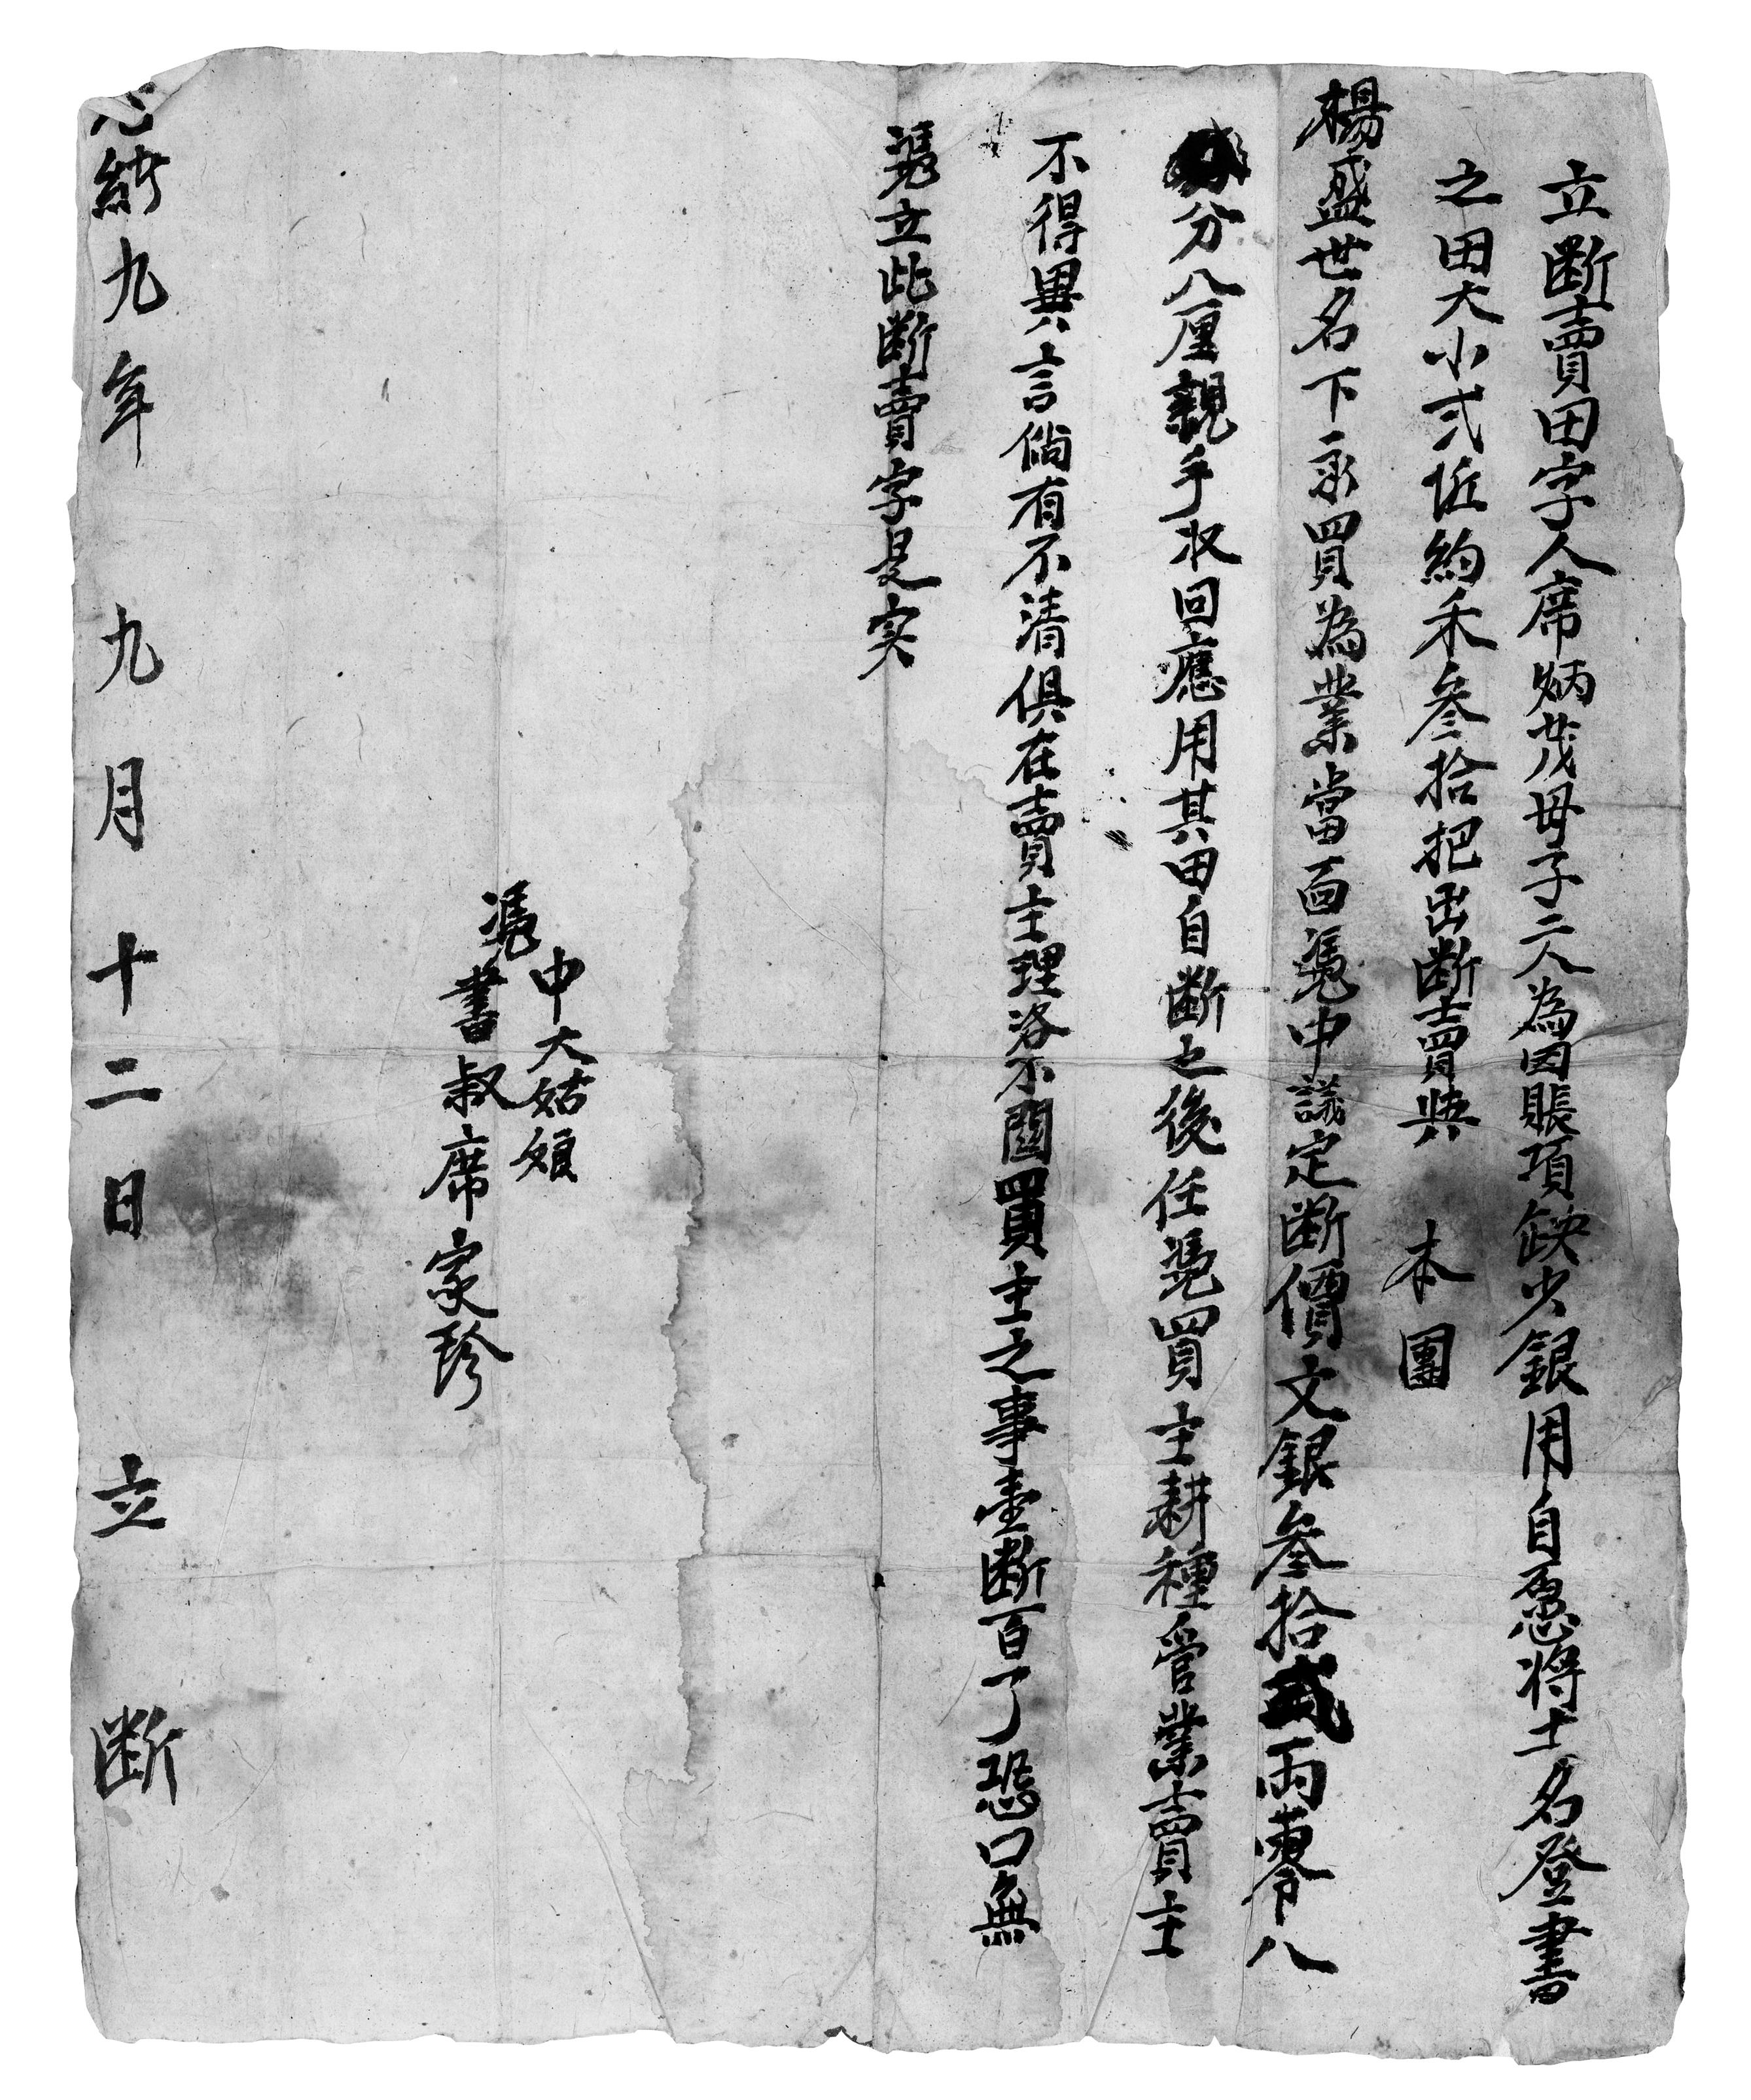 立断賣田字人席炳茂母子二人為因賬項缺少銀用自愿將土名登書
之田大小弍坵約禾叁拾把出断賣與　本團
楊盛世名下承買為業當面憑中議定断價文銀叁拾弍両零八
分八厘親手收回應用其田自断之後任憑買主耕種管業賣主
不得異言倘有不清俱在賣主理洛不関買主之事壹断百了恐口無
憑立此断賣字是实
憑
中大姑娘
書叔席家珍
緒九年　九月十二日　立　断